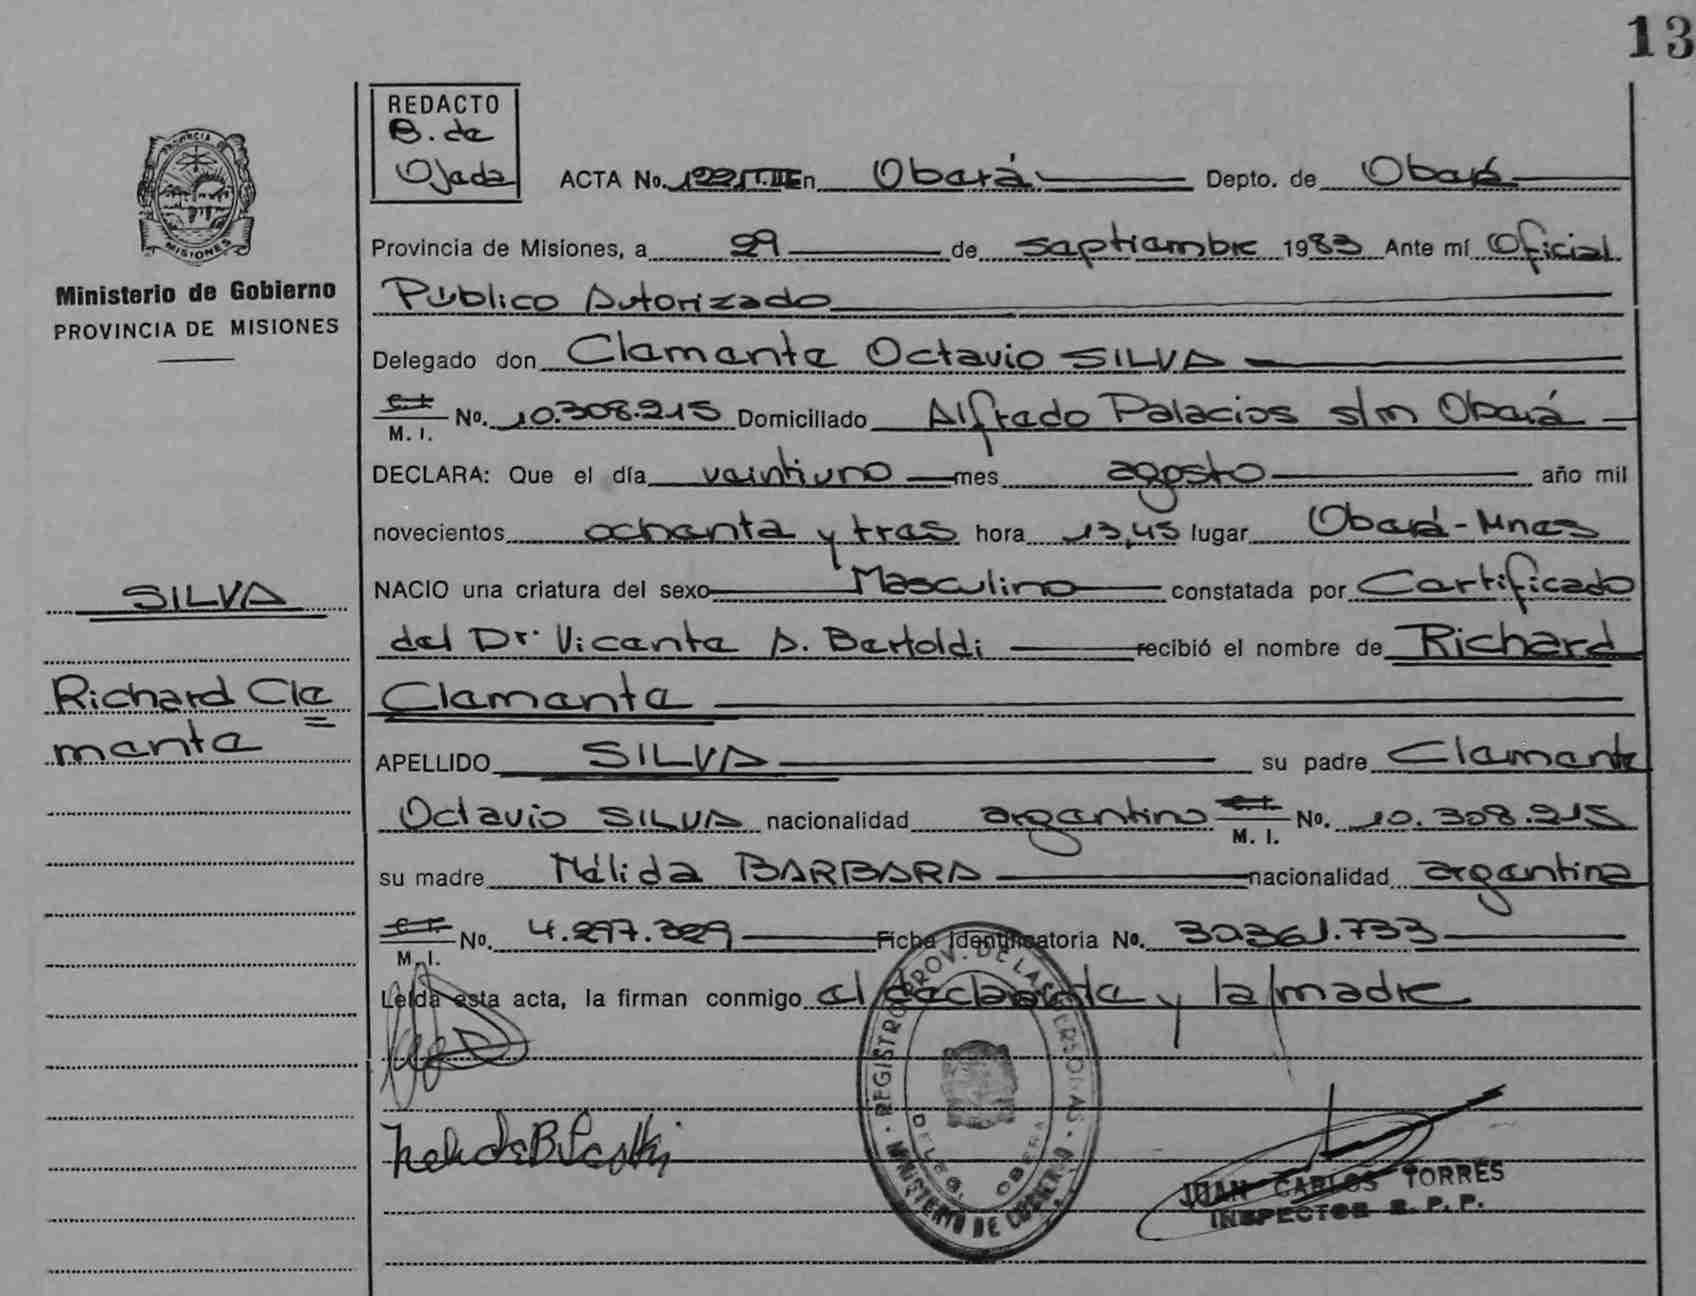 13
REDACTO
B. de
Ojeda
ACTA No. 1221 T.III En Oberá Depto. de Oberá
PROVINCIA DE
MISIONES
Provincia de Misiones, a 29 de septiembre 1983 Ante mí Oficial
Ministerio de Gobierno
PROVINCIA DE MISIONES
Público Autorizado
Delegado don Clemente Octavio SILVA
C.I.
M. I. No. 10.308.215 Domiciliado Alfredo Palacios s/n Oberá
DECLARA: Que el día veintiuno mes agosto año mil
novecientos ochenta y tres hora 13,45 lugar Oberá-Mnes
SILVA
NACIO una criatura del sexo Masculino constatada por Certificado
del Dr. Vicente A. Bertoldi recibió el nombre de Richard
Richard Cle
mente
Clemente
APELLIDO SILVA su padre Clemente
Octavio SILVA nacionalidad argentino C.I. M. I. No. 10.308.215
su madre Nélida BARBARA nacionalidad argentina
C.I.
M. I. No. 4.297.329 Ficha Identificatoria No. 30.361.733
Leída esta acta, la firman conmigo el declarante y la madre
REGISTRO PROV. DE LAS PERSONAS
DELEG. OBERA
MINISTERIO DE GOBIERNO
JUAN CARLOS TORRES
INSPECTOR R. P. P.